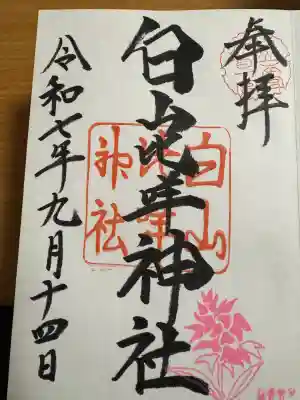 奉拝
白山比咩神社
白山
比咩
神社
令和七年九月十四日